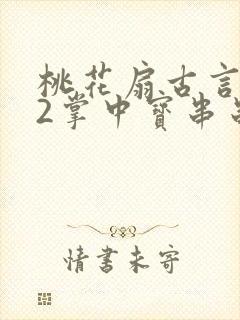 桃花扇古言
2掌中寳串
情書未寄